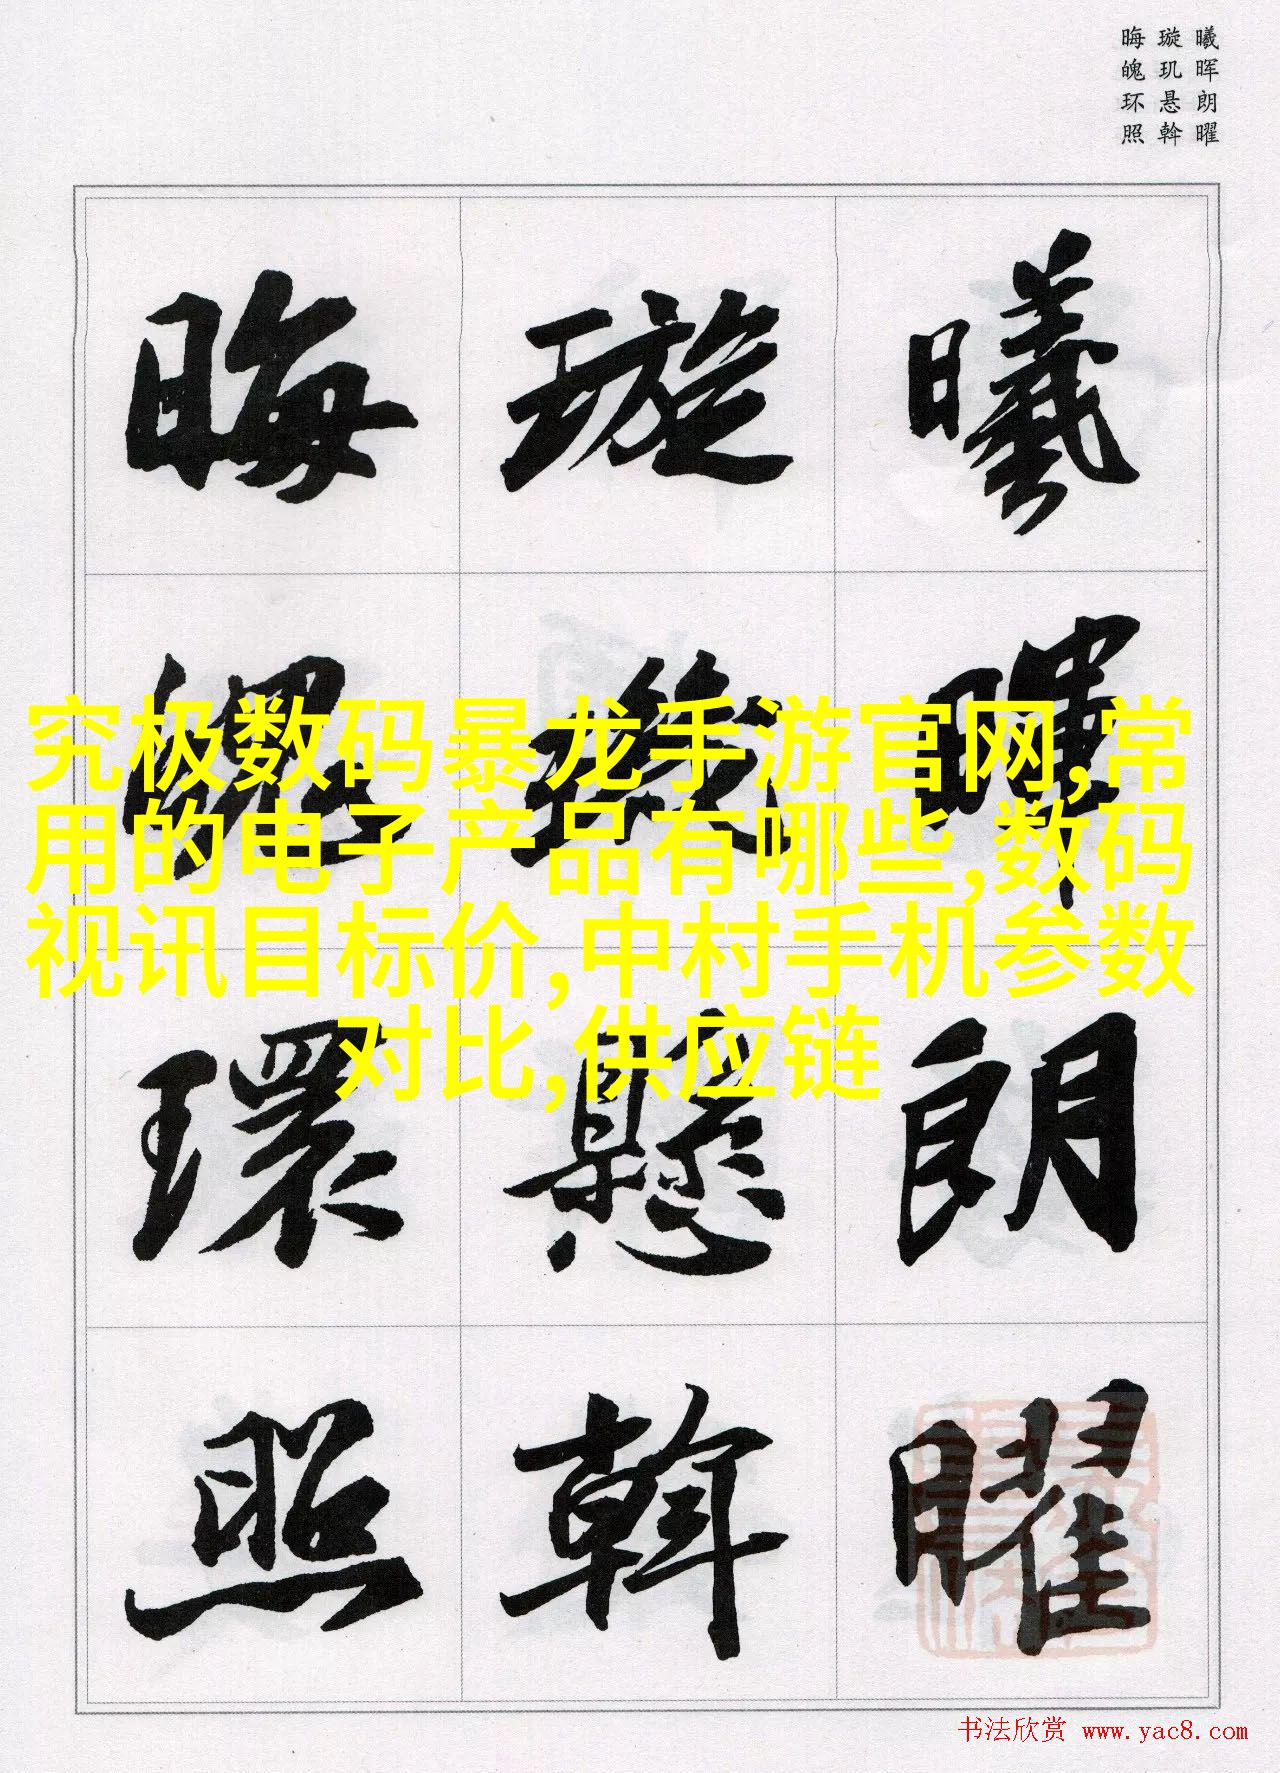 曦晖朗曜
璇玑悬斡
晦魄环照
曦暉朗曜
璇璣懸斡
晦魄環照
究极数码暴龙手游官网,常
用的电子产品有哪些,数码
视讯目标价,中村手机参数
对比,供应链
书法欣赏 www.yac8.com